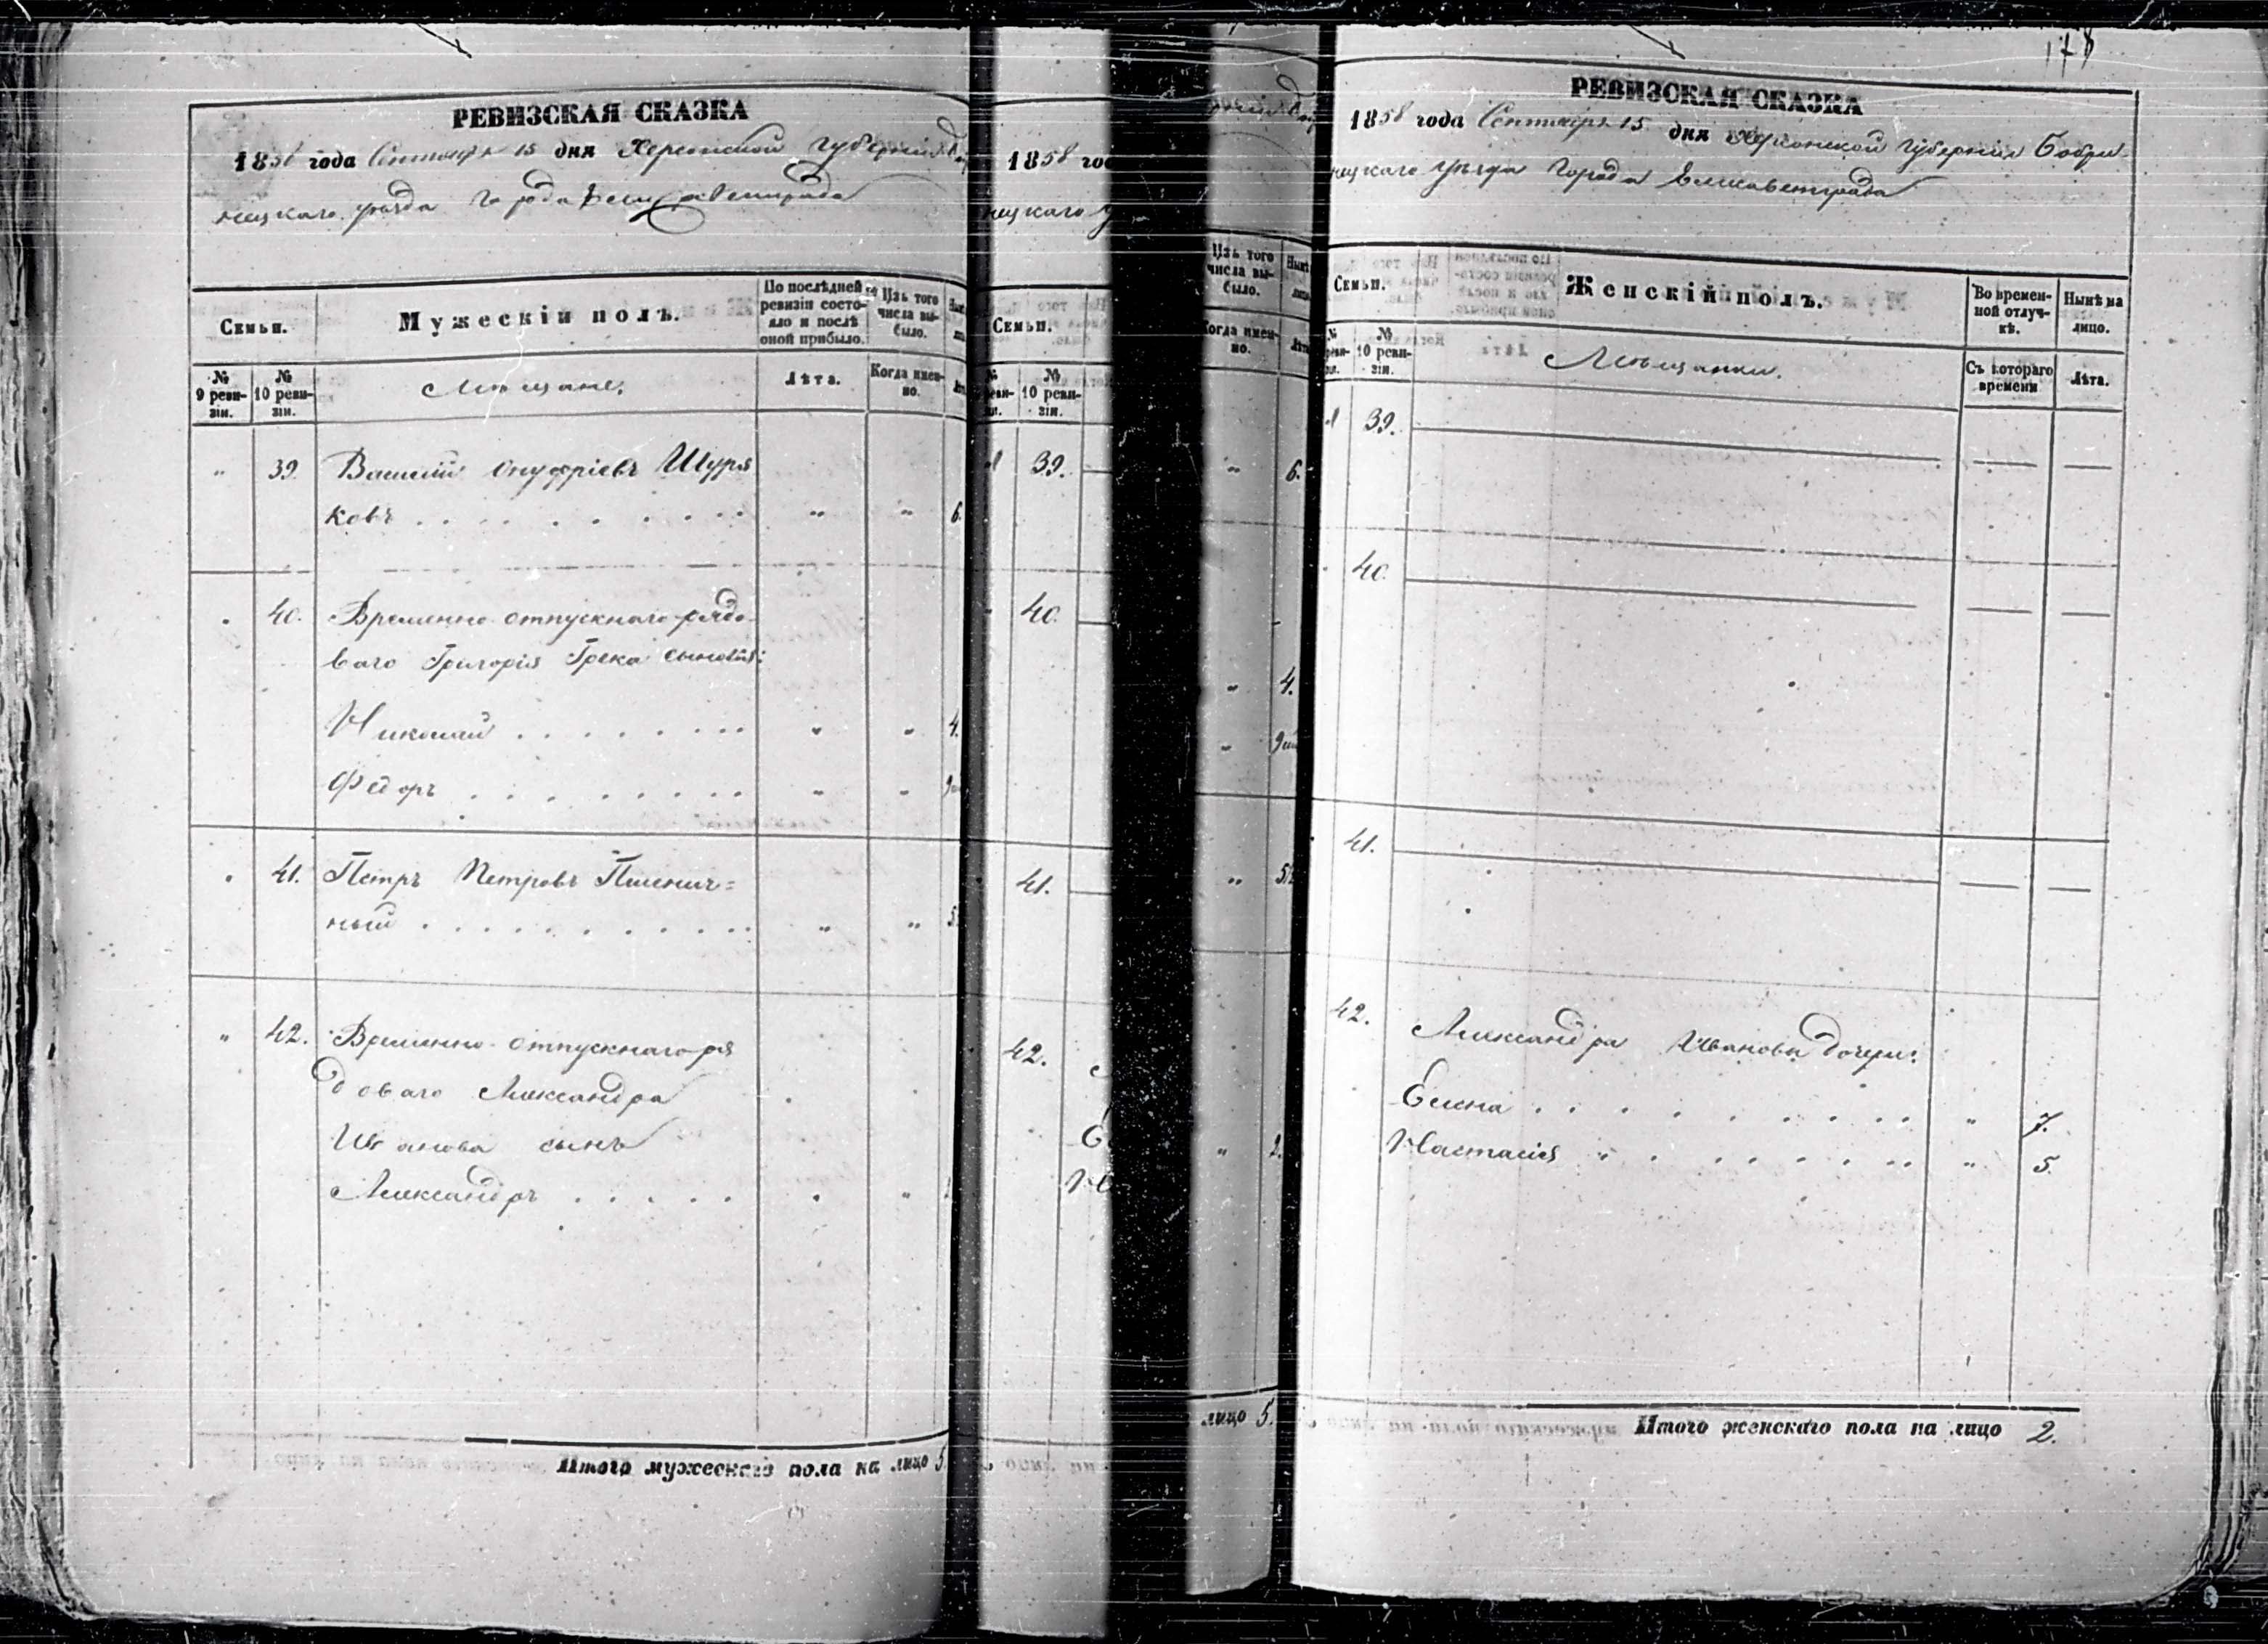 РЕВИЗСКАЯ СКАЗКА
1858 года Сентября 15 дня Херсонской Губерніи Боб
нецкаго уѣзда города Елисаветграда
Семьи.
Мужескій полъ.
По послѣдней ревизіи состояло и послѣ оной прибыло.
Изъ того числа выбыло.
№ 9 ревизіи.
№ 10 ревизіи.
Мѣщане.
Лѣта.
Когда именно.
" 39. Василій Онуфріевъ Шуря
ковъ . . . . . . . . . . " " 6.
" 40. Временно-отпускнаго рядо-
ваго Григорія Грека сыновья:
Николай . . . . . . . . " " 4.
Федоръ . . . . . . . . . " "
" 41. Петръ Петровъ Пшенич=
ный . . . . . . . . . . . " "
" 42. Временно-отпускнаго ря
доваго Александра
Иванова сынъ
Александръ . . . . . " "
Итого мужескаго пола на лицо 5.
1858 го
нецкаго у
Семьи.
№ 10 ревизіи.
39.
40.
41.
42.
Изъ того числа выбыло.
Когда именно.
" 6.
" 4.
"
"
" 2.
лицо 5.
178
РЕВИЗСКАЯ СКАЗКА
1858 года Сентября 15 дня Херсонской Губерніи Бобри
нецкаго уѣзда города Елисаветграда
Семьи.
Женскій полъ.
Во временной отлучкѣ.
Нынѣ на лицо.
№ 10 ревизіи.
Мѣщанки.
Съ котораго времени
Лѣта.
39.
40.
41.
42. Александра Иванова дочери:
Елена . . . . . . . . . . " 7.
Настасія . . . . . . . . " 5.
Итого женскаго пола на лицо 2.